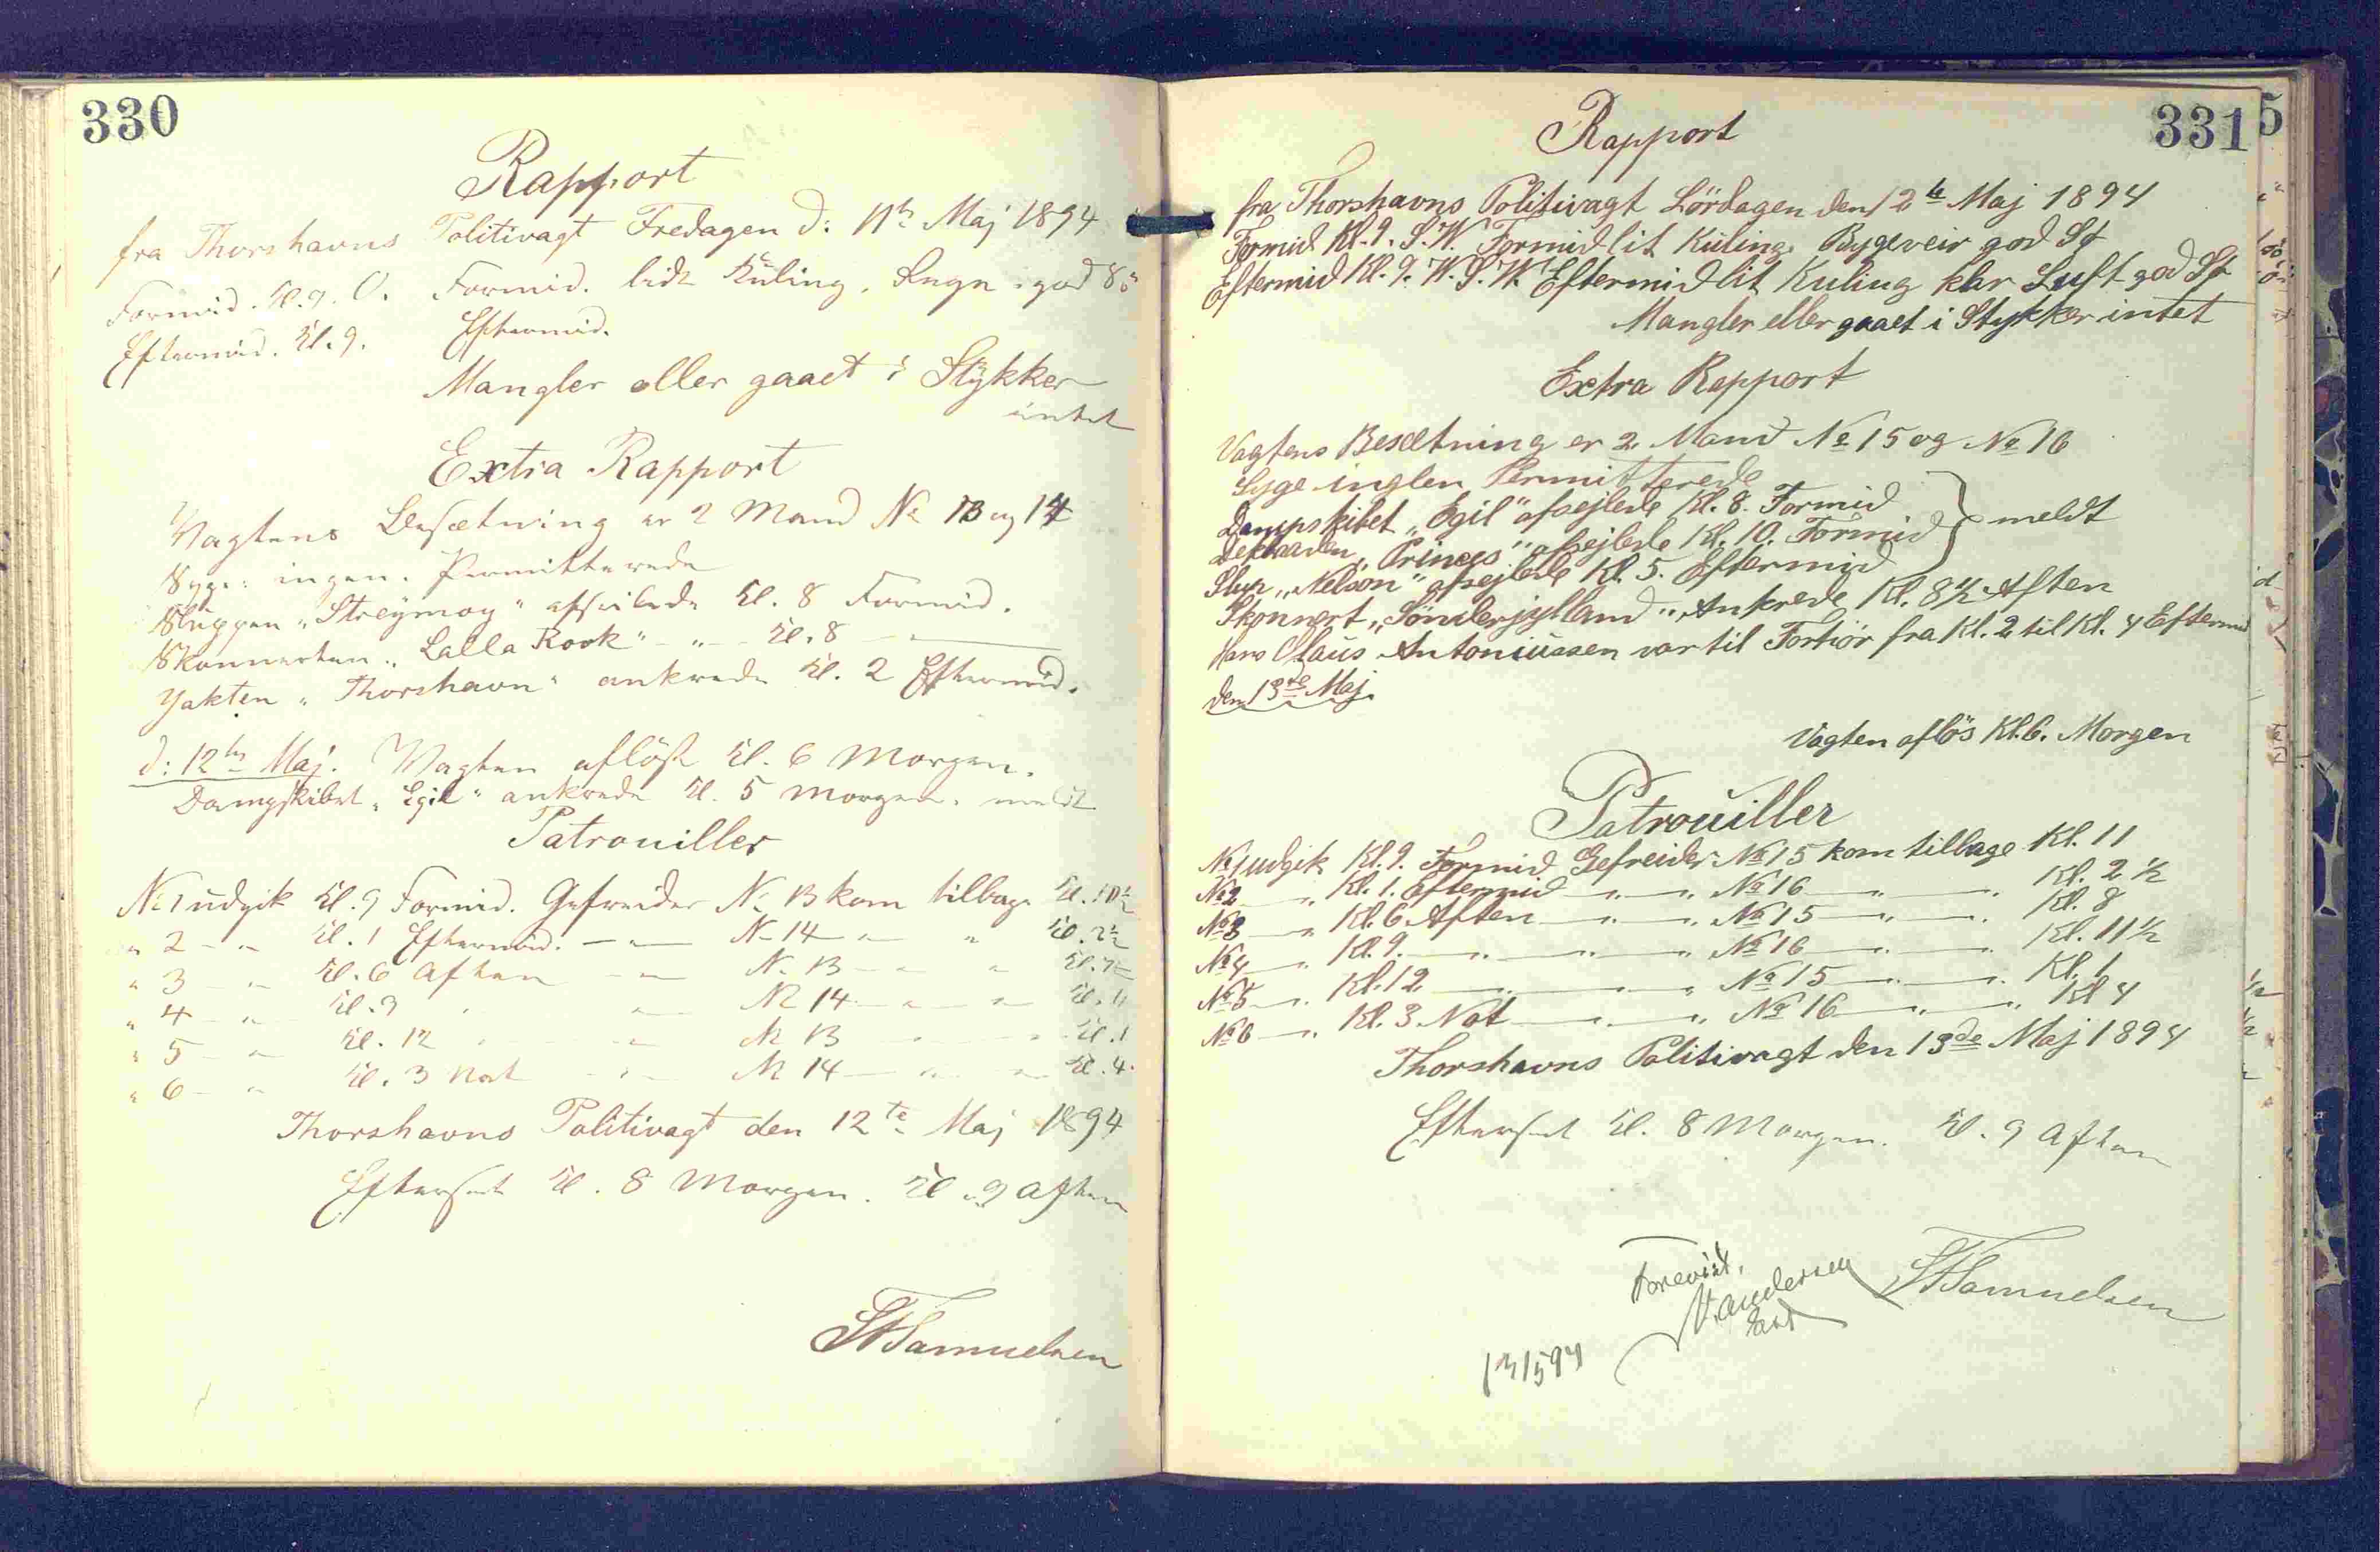 330
Rapport
fra Thorshavns Politivagt Fredagen d: 11te Maj 1894
Formid. Kl. 9. O. Formid. lidt Kuling, Regn, god Sö
Eftermid. Kl. 9. Eftermid.
Mangler eller gaaet i Stykker
intet
Extra Rapport
Vagtens Besætning er 2 Mand No 13 og 14
Syge: ingen. Permitterede
Sluppen „Streymoy" afseilede Kl. 8 Formid.
Skonnerten „Lalla Rook" - „ - Kl. 8 —
Jakten „Thorshavn" ankrede Kl. 2 Eftermid.
d: 12te Maj. Vagten aflöst Kl. 6 Morgen.
Dampskibet „Egil" ankrede Kl. 5 Morgen. meldt
Patrouiller
No 1 udgik Kl. 9 Formid. Gefreider No 13 kom tilbage Kl. 10½
„ 2 - „ Kl. 1 Eftermid. — „ — No 14 — „ „ Kl. 2½
„ 3 - „ Kl. 6 Aften — „ — No 13 — „ „ Kl. 7½
„ 4 - „ Kl. 9 „ — „ — No 14 — „ — „ Kl. 11
„ 5 - „ Kl. 12 „ — „ — No 13 „ „ Kl. 1
„ 6 - „ Kl. 3 Nat — „ — No 14 — „ — „ Kl. 4.
Thorshavns Politivagt den 12te Maj 1894
Efterset Kl. 8 Morgen. Kl. 9 Aften
Samuelsen
331
5
Rapport
fra Thorshavns Politivagt Lördagen den 12te Maj 1894
Formid Kl. 9. S.W. Formid lit Kuling, Bygeveir god Sø
Eftermid Kl. 9. W.S.W. Eftermid lit Kuling klar Luft god Sø
Mangler eller gaaet i Stykker intet
Extra Rapport
Vagtens Besætning er 2 Mand No 15 og No 16
Syge inglen Permitterede
Dampskibet „Egil" afsejlede Kl. 8. Formid
„Princes" afsejlede Kl. 10. Formid } meldt
Slup „Nelson" afsejlede Kl. 5. Eftermid
Skonnert „Sönderjylland" Ankrede Kl. 8½ Aften
Hans Claus Antoniussen var til Forhör fra Kl. 2 til Kl. 4 Eftermid
den 13de Maj.
Vagten aflös Kl. 6. Morgen
Patrouiller
No 1 udgik Kl. 9. Formid Gefreider No 15 kom tilbage Kl. 11
No 2 — „ Kl. 1. Eftermid — „ — „ No 16 — „ — „ Kl. 2½
No 3 — „ Kl. 6 Aften — „ — „ No 15 — „ — „ Kl. 8
No 4 — „ Kl. 9. — „ — „ — „ No 16 — „ — „ Kl. 11½
No 5 — „ Kl. 12 — „ — „ No 15 — „ — „ Kl. 1
No 6 — „ Kl. 3. Nat — „ — „ No 16 — „ — „ Kl 4
Thorshavns Politivagt den 13de Maj 1894
Efterset Kl. 8 Morgen. Kl. 9 Aften
Forevist,
Andersen
Samuelsen
13/5 94